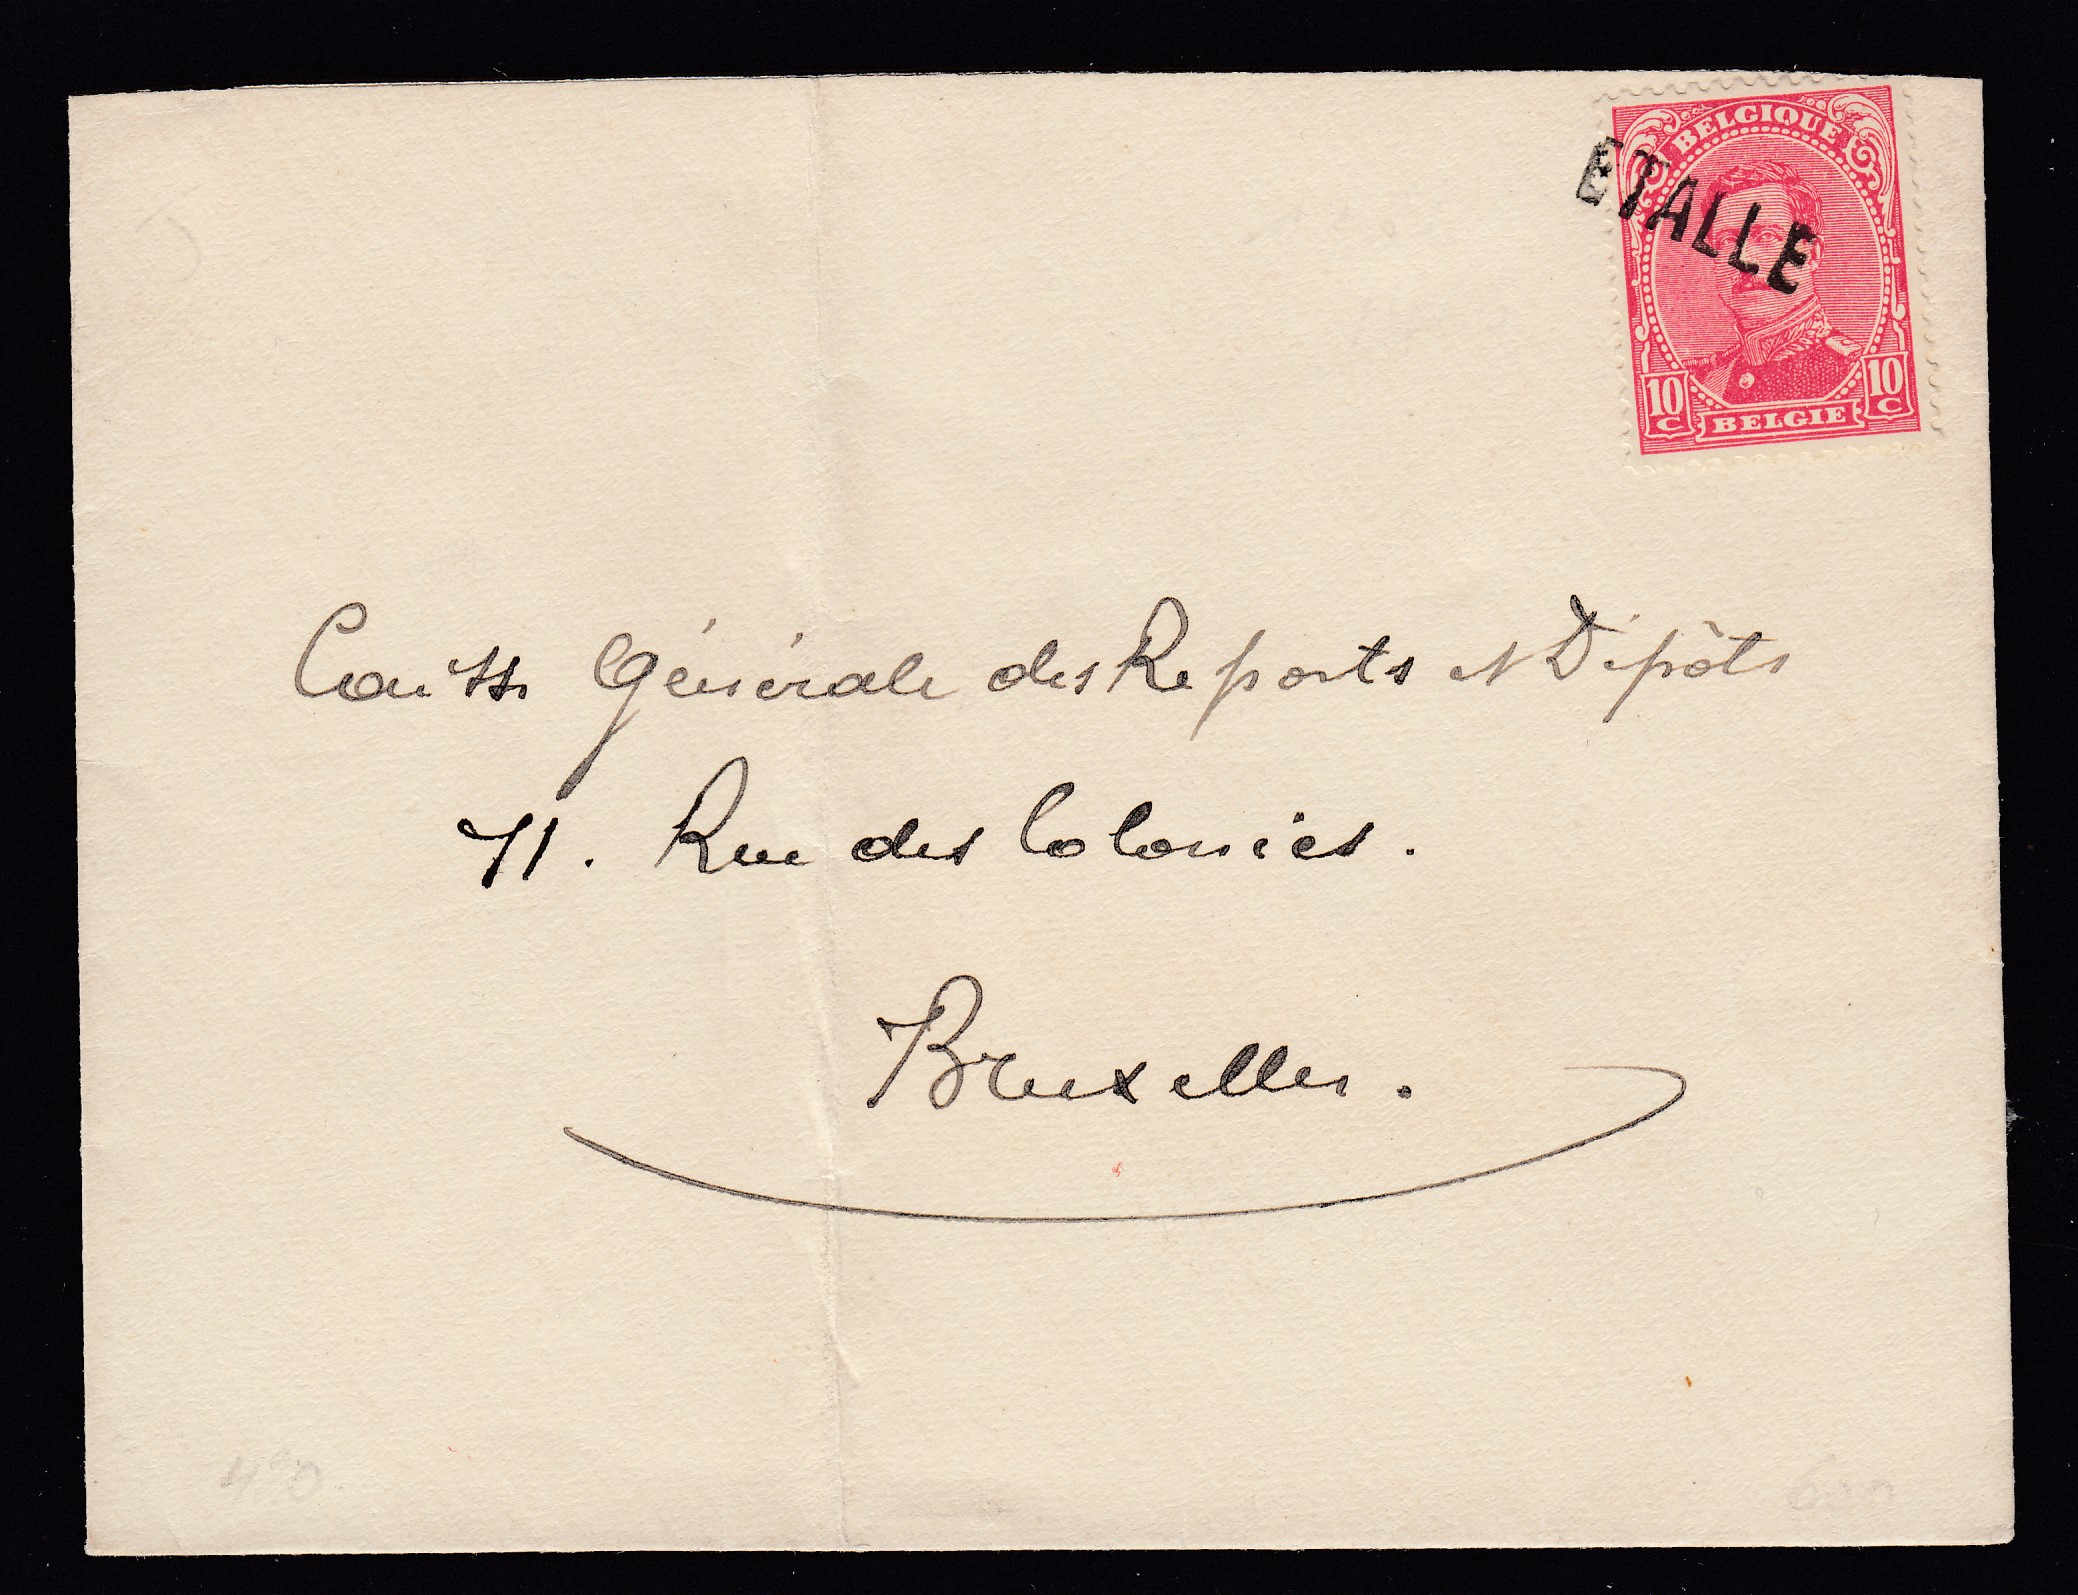 BELGIQUE
ETALLE
10 C 10 C
BELGIE
Caisse Générale des Reports et Dépôts
11. Rue des Colonies.
Bruxelles.